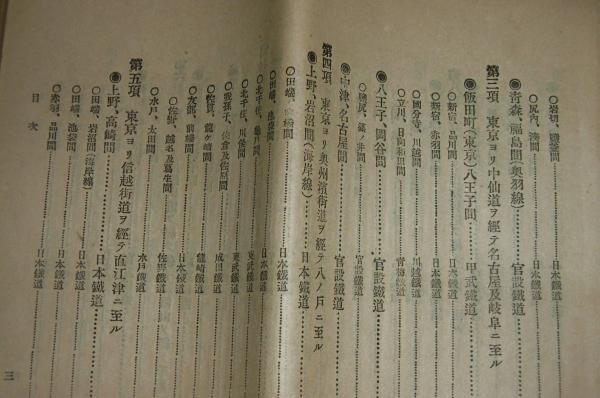 ○岩切、鹽竈間……日本鐵道
○尻內、湊間……日本鐵道
◉靑森、福島間(奧羽線)……官設鐵道
第三項 東京ヨリ中仙道ヲ經テ名古屋及岐阜ニ至ル
◉飯田町(東京)八王子間……甲武鐵道
○新宿、品川間……日本鐵道
○新宿、赤羽間……日本鐵道
○國分寺、川越間……川越鐵道
○立川、日向和田間……靑梅鐵道
◉八王子、岡谷間……官設鐵道
○鹽尻、篠ノ井間……官設鐵道
◉中津、名古屋間……官設鐵道
第四項 東京ヨリ奧州濱街道ヲ經テ八ノ戶ニ至ル
◉上野、岩沼間(海岸線)……日本鐵道
○田端、間……日本鐵道
○田端、池袋間……日本鐵道
○北千住、龜戶間……東武鐵道
○北千住、川俣間……東武鐵道
○我孫子、佐倉及佐原間……成田鐵道
○佐貫、龍ヶ崎間……龍崎鐵道
○友部、前橋間……日本鐵道
○佐野、越名及葛生間……佐野鐵道
○水戶、太田間……水戶鐵道
第五項 東京ヨリ信越街道ヲ經テ直江津ニ至ル
◉上野、高崎間……日本鐵道
○田端、岩沼間(海岸線)……日本鐵道
○田端、池袋間……日本鐵道
○赤羽、品川間……日本鐵道
目次
三